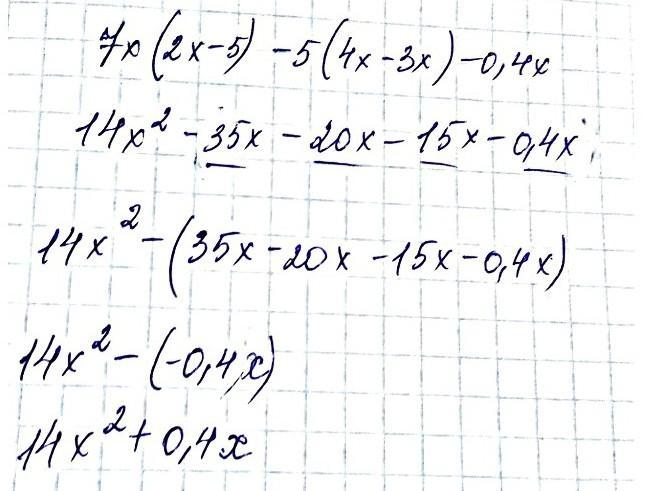 7x(2x-5) -5(4x-3x) -0,4x
14x² - 35x - 20x - 15x - 0,4x
14x² - (35x - 20x - 15x - 0,4x)
14x² - (-0,4x)
14x² + 0,4x